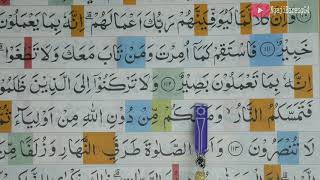 وَاِنَّ كُلًّا لَّمَّا لَيُوَفِّيَنَّهُمْ رَبُّكَ اَعْمَالَهُمْ ۗ اِنَّهٗ بِمَا يَعْمَلُوْنَ
خَبِيْرٌ ﴿١١١﴾ فَاسْتَقِمْ كَمَآ اُمِرْتَ وَمَنْ تَابَ مَعَكَ وَلَا تَطْغَوْا ۗ
اِنَّهٗ بِمَا تَعْمَلُوْنَ بَصِيْرٌ ﴿١١٢﴾ وَلَا تَرْكَنُوْٓا اِلَى الَّذِيْنَ ظَلَمُوْا
فَتَمَسَّكُمُ النَّارُ ۙ وَمَا لَكُمْ مِّنْ دُوْنِ اللّٰهِ مِنْ اَوْلِيَاۤءَ ثُمَّ
لَا تُنْصَرُوْنَ ﴿١١٣﴾ وَاَقِمِ الصَّلٰوةَ طَرَفَيِ النَّهَارِ وَزُلَفًا مِّنَ